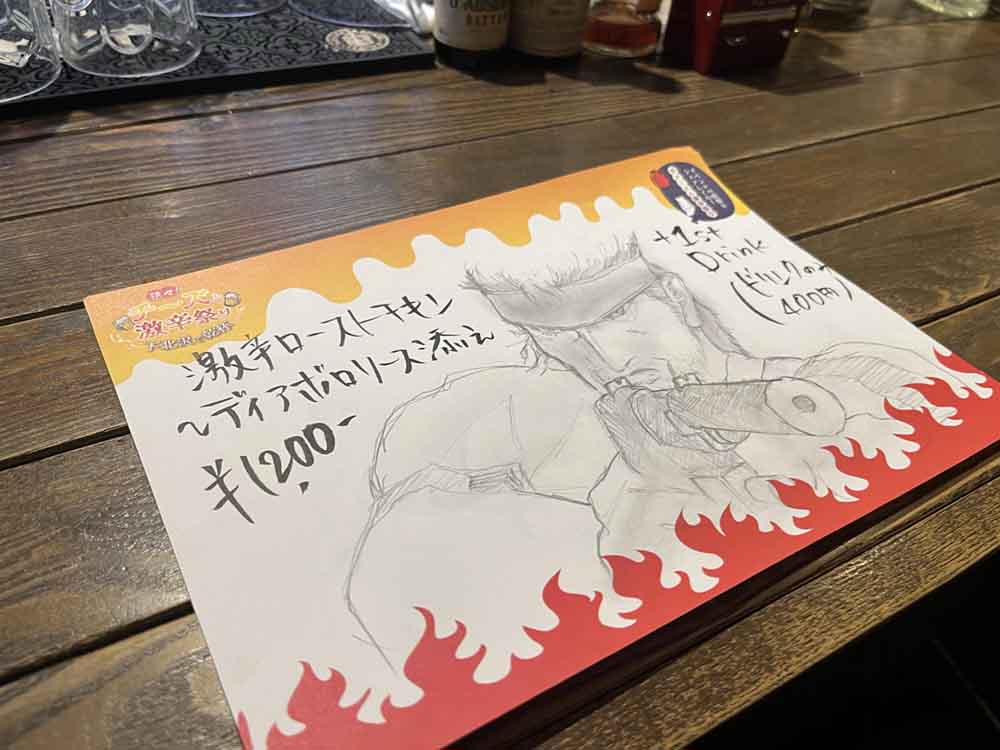 激辛祭り
激辛ローストチキン
~ディアボロリース添え
¥1,200-
+1st
Drink
(ドリンクのみ
400円)
BITTER